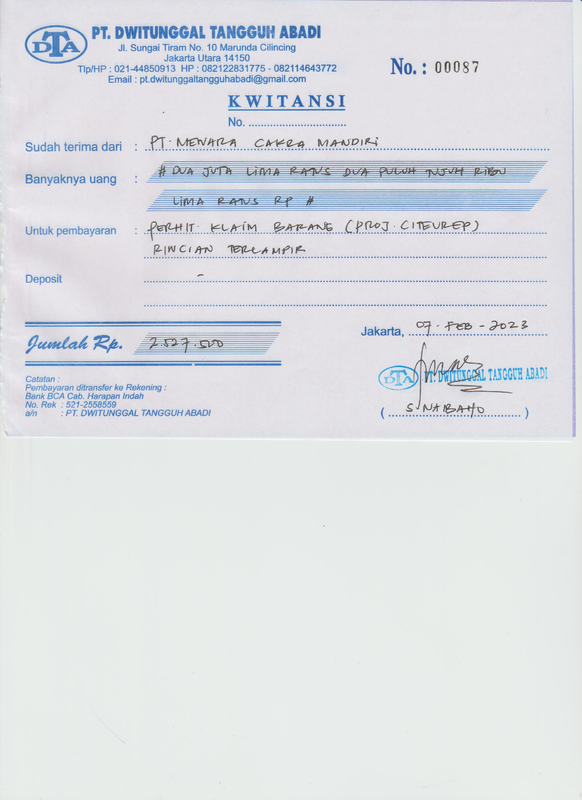 DTA
PT. DWITUNGGAL TANGGUH ABADI
Jl. Sungai Tiram No. 10 Marunda Cilincing
Jakarta Utara 14150
Tlp/HP : 021-44850913 HP : 082122831775 - 082114643772
Email : pt.dwitunggaltangguhabadi@gmail.com
No. : 00087
KWITANSI
No. ................................
Sudah terima dari : PT. MENARA CAKRA MANDIRI
Banyaknya uang : # DUA JUTA LIMA RATUS DUA PULUH TUJUH RIBU
LIMA RATUS RP #
Untuk pembayaran : PERHIT. KLAIM BARANG (PROJ. CITEUREP)
RINCIAN TERLAMPIR
Deposit : -
Jakarta, 07 - FEB - 2023
Jumlah Rp. 2.527.500
DTA PT. DWITUNGGAL TANGGUH ABADI
Catatan :
Pembayaran ditransfer ke Rekening :
Bank BCA Cab. Harapan Indah
No. Rek : 521-2558559
a/n : PT. DWITUNGGAL TANGGUH ABADI
( S. NAIBAHO )